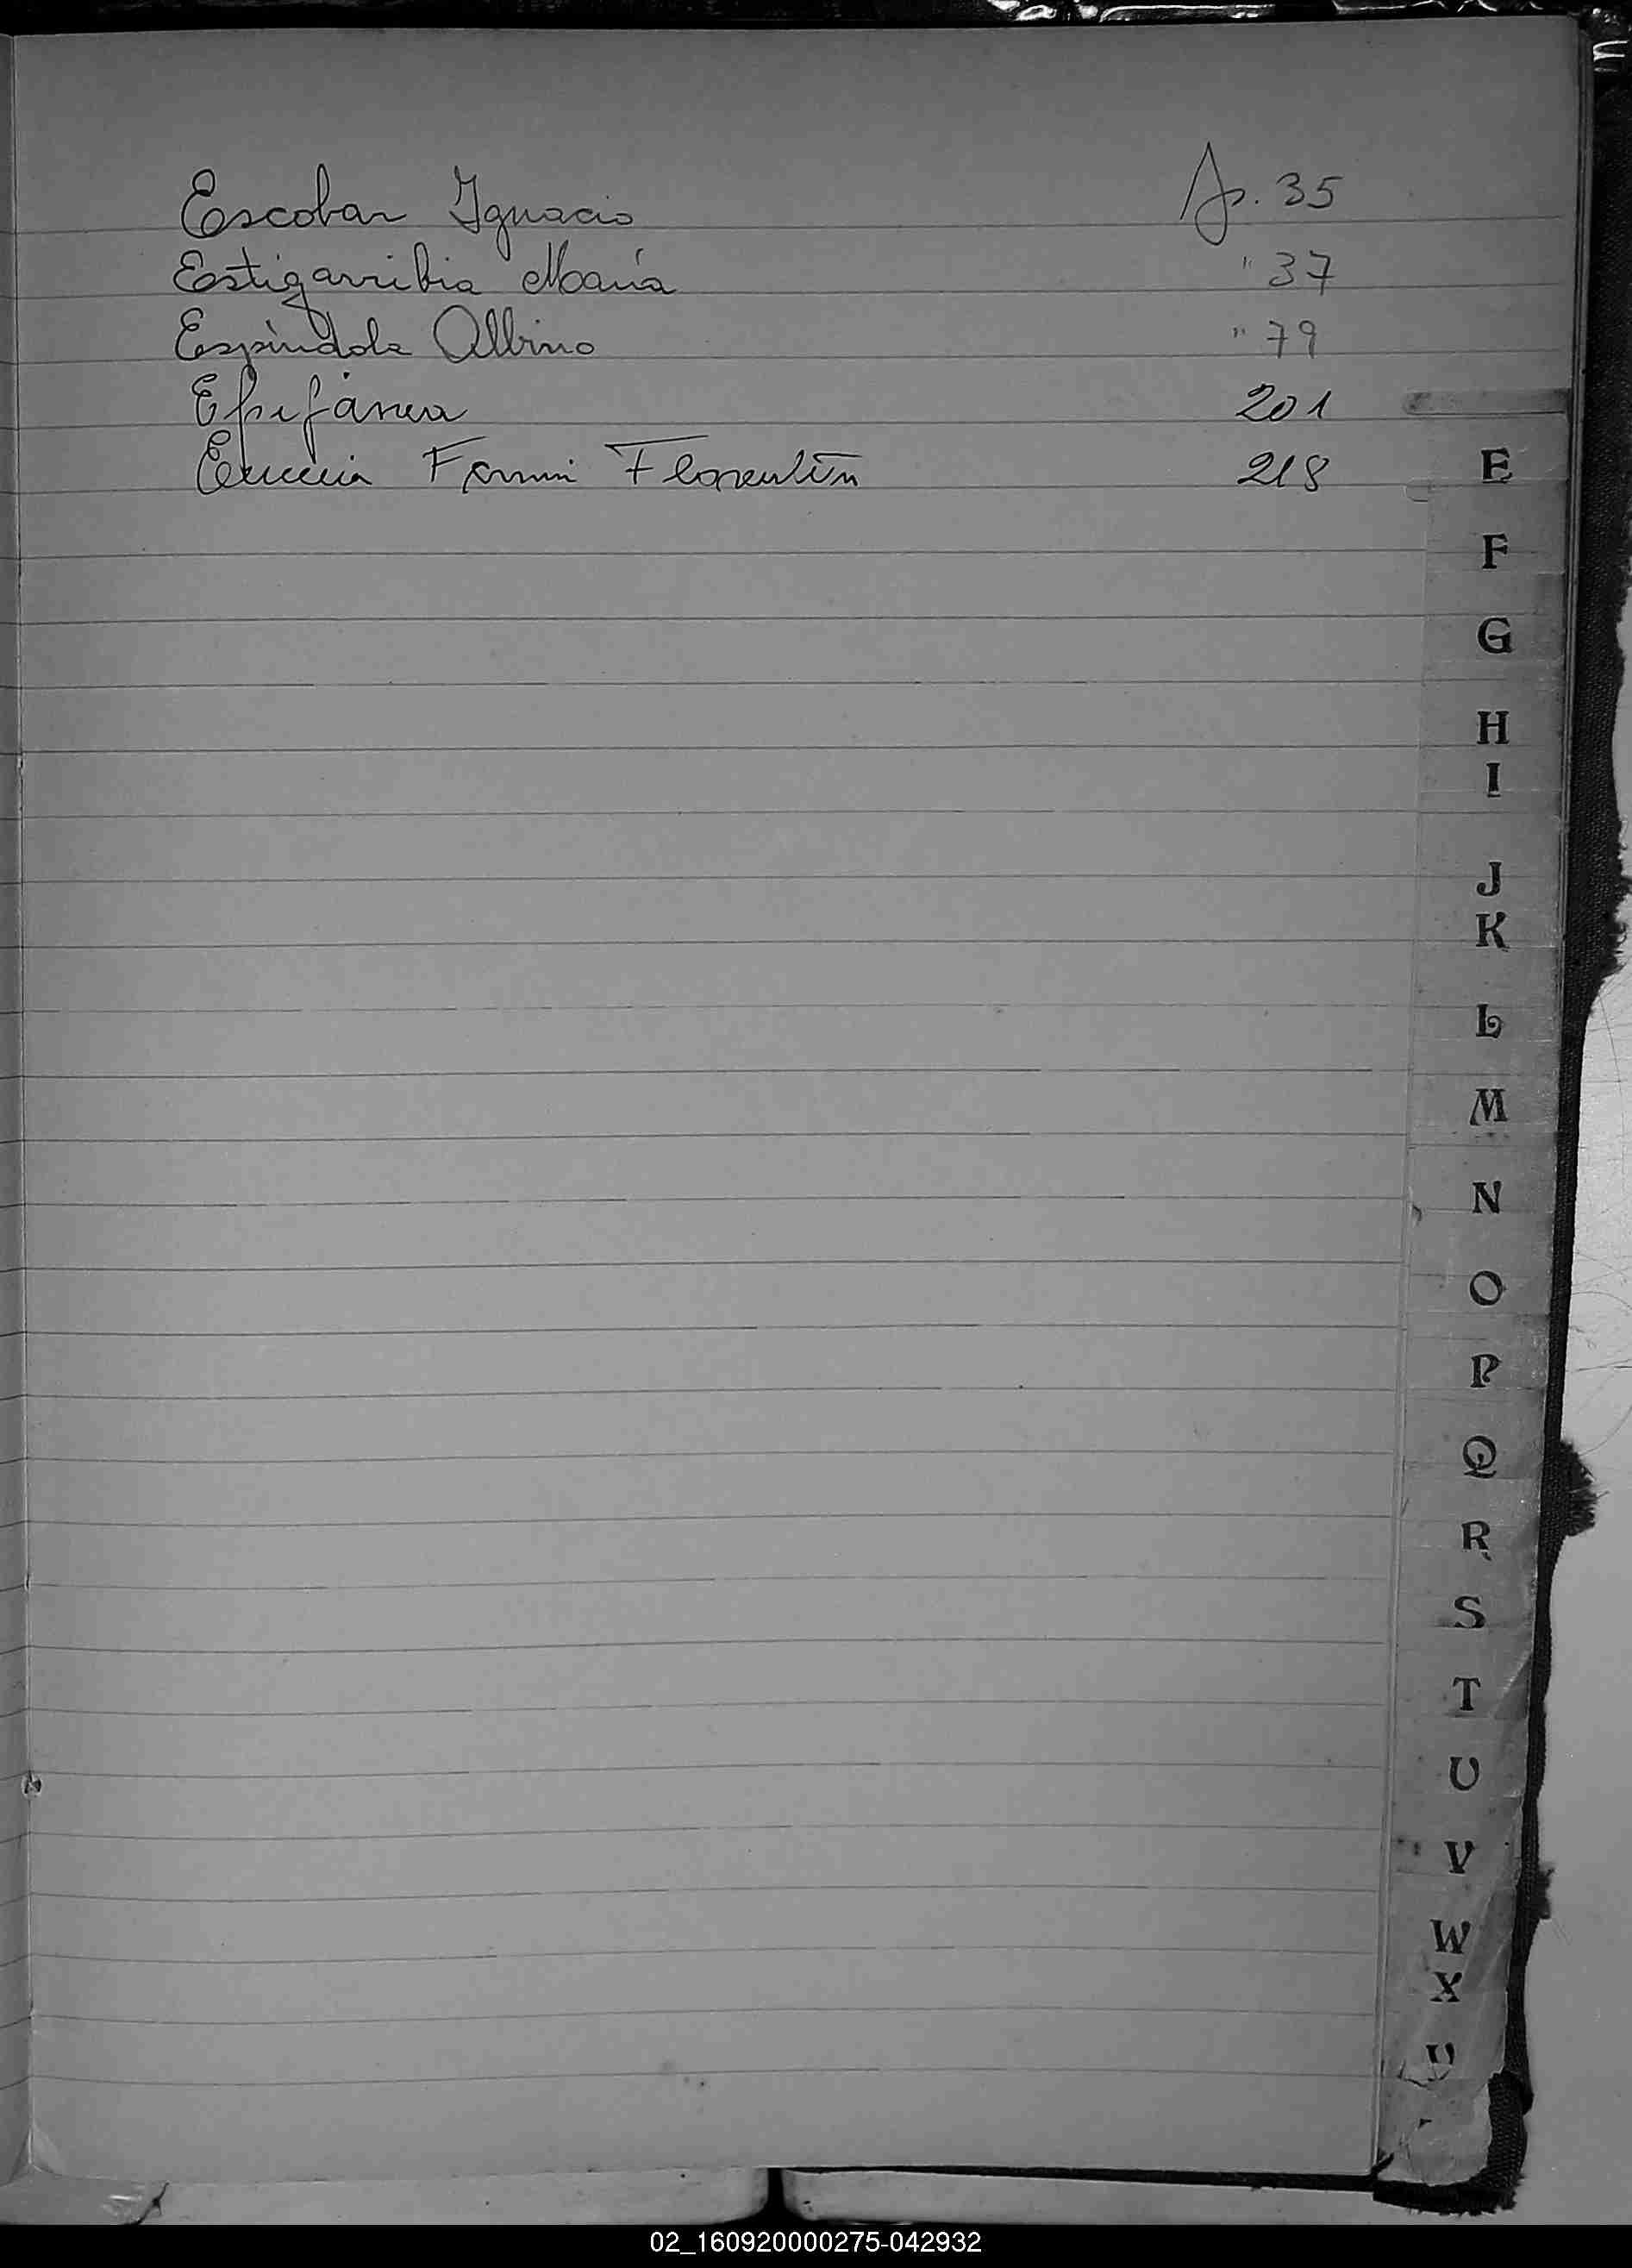 Escobar Ignacio Ap. 35
Estigarribia María " 37
Espíndola Albino " 79
Epifánia 201
Florentín 218
E
F
G
H
I
J
K
L
M
N
O
P
Q
R
S
T
U
V
W
X
02_160920000275-042932